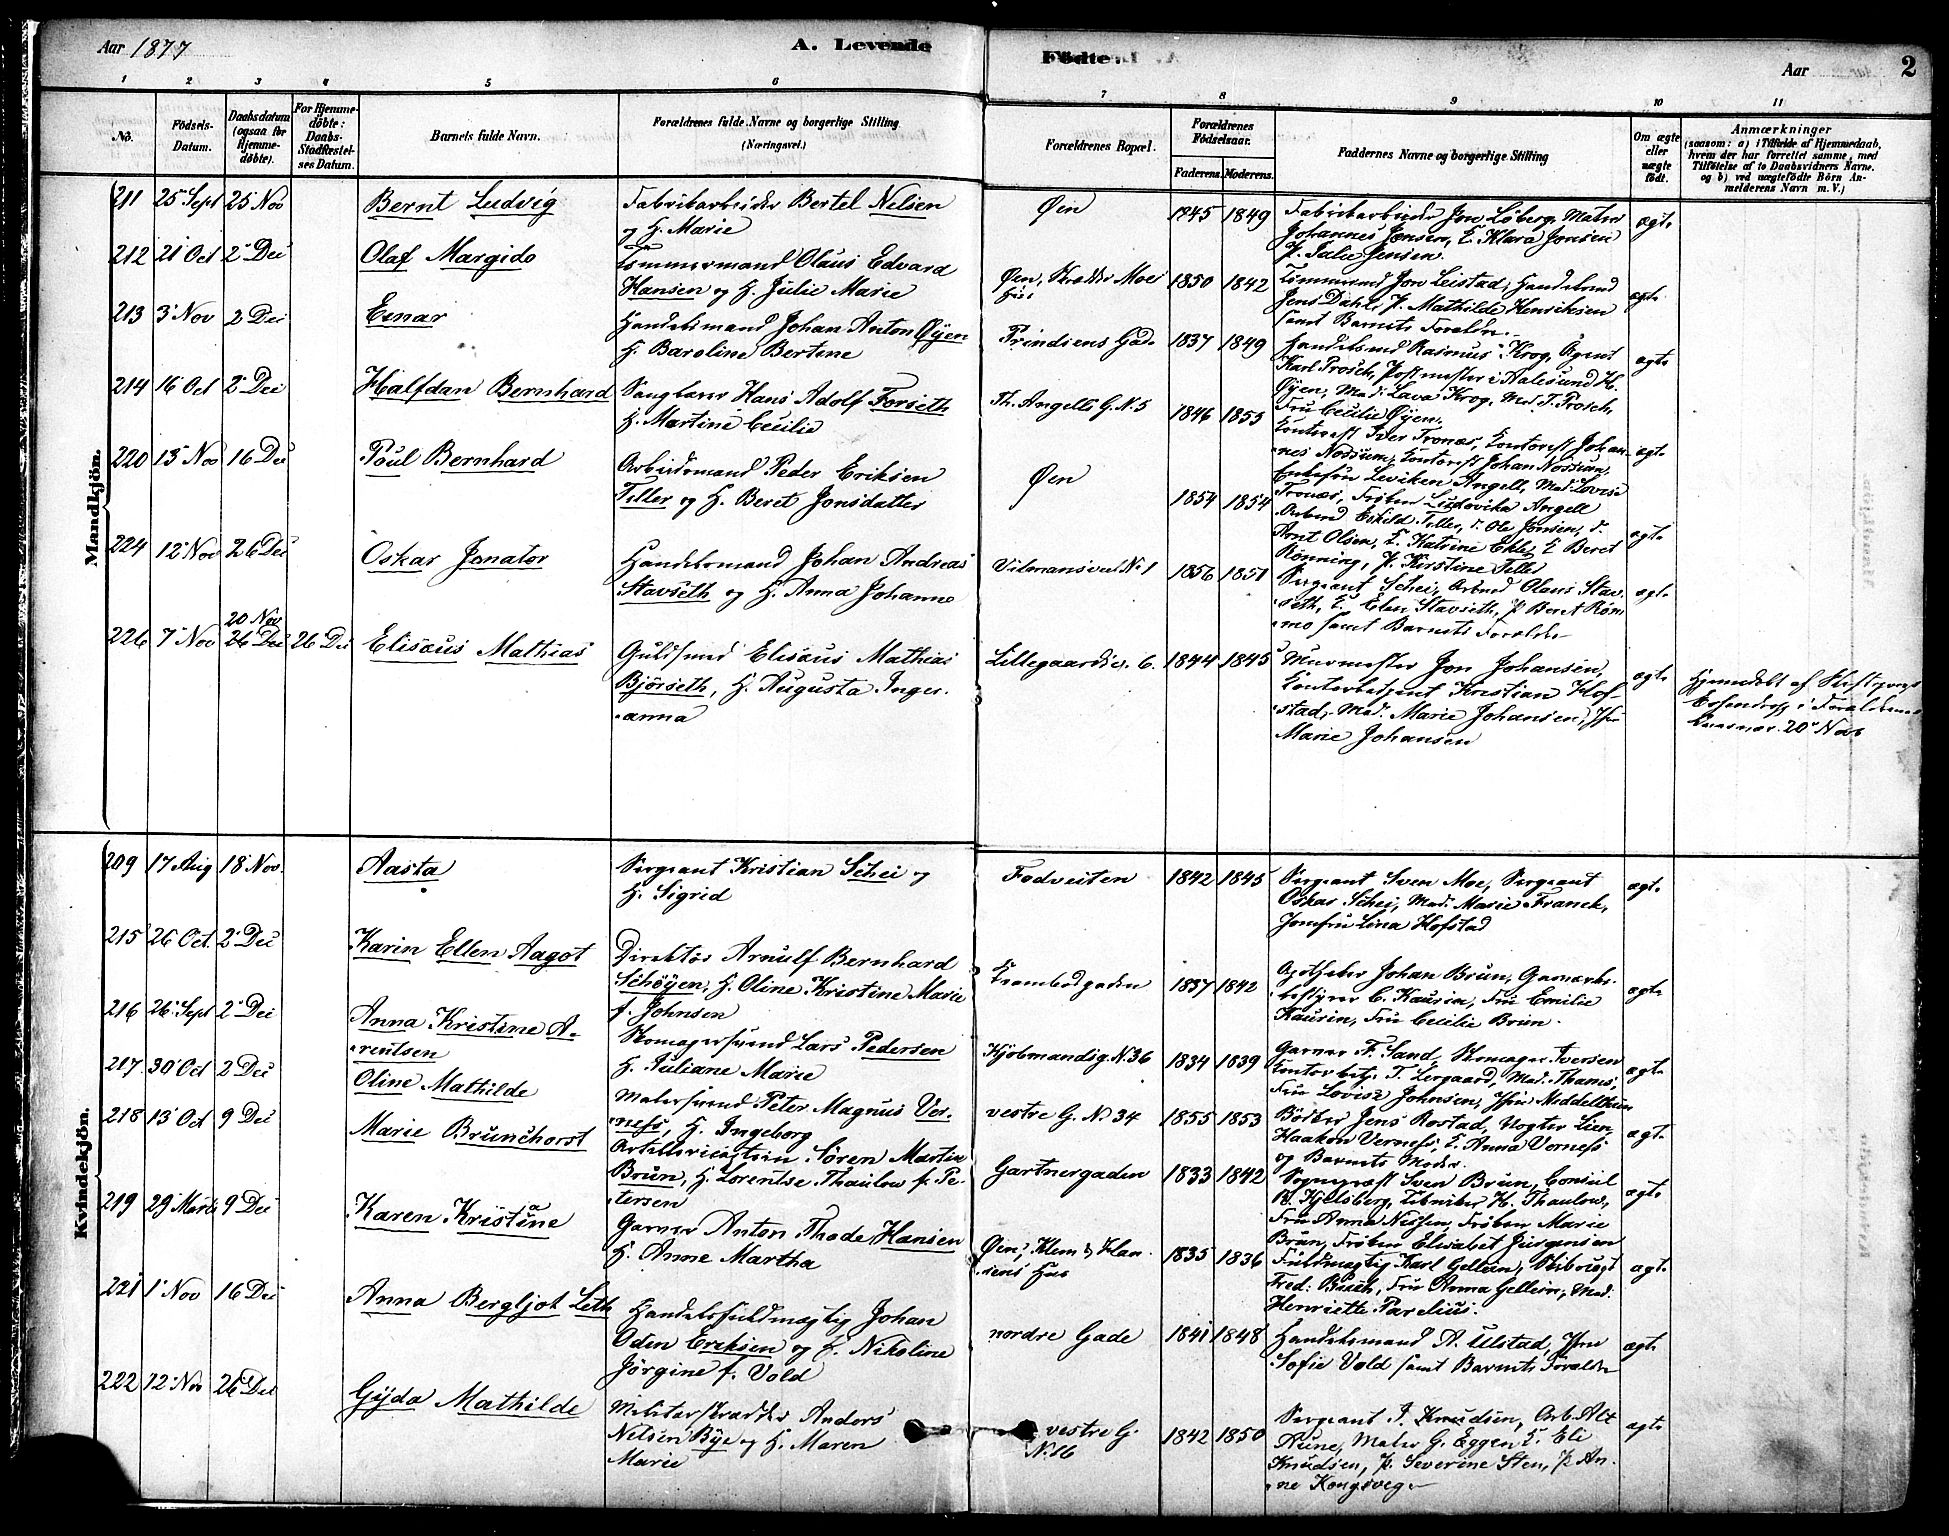 Aar 1877
A. Levende
Fødte
Aar
2
1 2 3 4 5 6 7 8 9 10 11
No.
Födsels-Datum.
Daabsdatum (ogsaa for Hjemme-döbte).
For Hjemme-döbte: Daabs-Stadfæstel-ses Datum.
Barnets fulde Navn.
Forældrenes fulde Navne og borgerlige Stilling
(Næringsvei.)
Forældrenes Bopæl.
Forældrenes Födselsaar.
Faderens. Moderens.
Faddernes Navne og borgerlige Stilling
Om ægte eller uægte födt.
Anmærkninger
(saasom: a) i Tilfælde af Hjemmedaab,
hvem der har forrettet samme, med
Tilföielse af to Daabsvidners Navne.
og b) ved uægtefödte Börn An-
melderens Navn m. V.)
Mandkjön.
211 25 Sept 25 Nov Bernt Ludvig
Fabrikarbeider Bertel Nelsen
og H. Marie
Øen
1845 1849
Fabrikarbeider Jon Löberg, Maler
Johannes Jensen, E. Klara Jensen
P. Julie Jensen.
ægte
212 21 Oct 2 Dec Olaf Margido
Tømmermand Olaus Edvard
Hansen og H. Julie Marie
Øen, Moe
1850 1842
Tømmermd Jon Leistad, Handelsmd
Jens Dahl, P. Mathilde Henriksen
samt Barnets Forældre.
ægte
213 3 Nov 2 Dec Einar
Handelsmand Johan Anton Öyen
H. Baroline Bertine
Prindsens Gade
1837 1849
Handelsmd Rasmus Krog, Agent
Karl Prosch, Postmester i Aalesund H.
Öyen, Mad. Lava Krog, Mad. T. Prosch,
Fru Cecilie Öyen.
ægte
214 16 Oct 2 Dec Halfdan Bernhard
Sanglærer Hans Adolf Forseth
H. Martine Cecilie
Th. Angells G. N. 5
1846 1855
Kontorist Iver Tronæs, Kontorist Johan-
nes Nossum, Kontorist Johan Nossum,
Enkefru Leviken Angell, Mad. Lovise
Tronæs, Frøken Ludovika Angell
ægte
220 13 Nov 16 Dec Poul Bernhard
Arbeidsmand Peder Eriksen
Teller og H. Beret Jonsdatter
Øen
1854 1854
Arbmd Eskild Teller, Ole Jonsen,
Arnt Olsen, E. Katrine Ekle, E Beret
Rønning, P. Kirstine Teller
ægte
224 12 Nov 26 Dec Oskar Jonator
Handelsmand Johan Andreas
Stavseth og H. Anna Johanne
N. 1
1856 1851
Sergeant Schei, Arbmd Olaus Stav-
seth, E. Elen Stavseth, P. Beret Røm-
mo samt Barnets Forældre
ægte
20 Nov
226 7 Nov 26 Dec 26 Dec Elisæus Mathias
Guldsmed Elisæus Mathias
Björseth, H. Augusta Inger-
anna
Lillegaardsv. 6.
1844 1845
Murmester Jon Johansen,
Kontorbetjent Kristian Hof-
stad, Mad. Marie Johansen, Jfru
Marie Johansen
ægte
Hjemdøbt af Stiftsprovst
Essendrop i Forældrenes
20 Nov
Kvindekjön.
209 17 Aug 18 Nov. Aasta
Sergeant Kristian Schei og
H. Sigrid
Fodveiten
1842 1845
Sergeant Sven Moe, Sergeant
Oskar Schei, Mad. Marie Franck,
Jomfru Lina Hofstad
ægte
215 26 Oct. 2 Dec Karin Ellen Aagot
Direktør Arnulf Bernhard
Schöyen, H. Oline Kristine Marie
f. Johnsen
1837 1842
Apotheker Johan Brun,
bestyrer C. Kaurin, Fru Emilie
Kaurin, Fru Cecilie Brun.
ægte
216 26 Sept 2 Dec Anna Kristine A-
rentsen
Skomagersvend Lars Pedersen
H. Juliane Marie
Kjöbmandsg. N. 36
1834 1839
Garver F. Sand, Skomager Iversen
Kontorbetj. T. Lergaard, Mad. Thanes,
Fru Lovise Johnsen, Jfru Middelthun
ægte
217 30 Oct 2 Dec Oline Mathilde
Malersvend Peter Magnus Ver-
ness, H. Ingeborg
vestre G. N. 34
1855 1853
Bödker Jens Rostad, Lien
Haakon Verness, E. Anna Verness
og Barnets Moder.
ægte
218 13 Oct 9 Dec Marie Brunchorst
Artillericaptein Sören Martin
Brun, H. Lorentse Thaulow f. Pe-
tersen
Gartnergaden
1833 1842
Sognepræst Sven Brun, Consul
Kjelsberg, H. Thaulow,
Fru Anna Nissen, Frøken Marie
Brun, Frøken Elisabet Jürgensen
ægte
219 29 Marts 9 Dec Karen Kristine a
Garver Anton Thode Hansen
H. Anne Martha
Øen, Klem & Han-
sens Hus
1835 1836
Fuldmægtig Karl Gellein,
Fred. Buck, Fru Anna Gellein, Mad.
Henriette Parelius.
ægte
221 1 Nov 16 Dec Anna Bergljot Leth
Handelsfuldmægtig Johan
Oden Eriksen og H. Nikoline
Jörgine f. Vold
nordre Gade
1841 1848
Handelsmand A. Ulstad, Jfru
Sofie Vold samt Barnets Forældre
ægte
222 12 Nov 26 Dec Gyda Mathilde
Militærskrædder Anders
Nelsen Bye og H. Maren
Marie
vestre G.
N. 16
1842 1850
Sergeant P. Knudsen, Arb. Alt
Aune, Maler G. Eggen E. Eli
Knudsen, P. Severine Sten, P. An-
ne Kongsveg
ægte